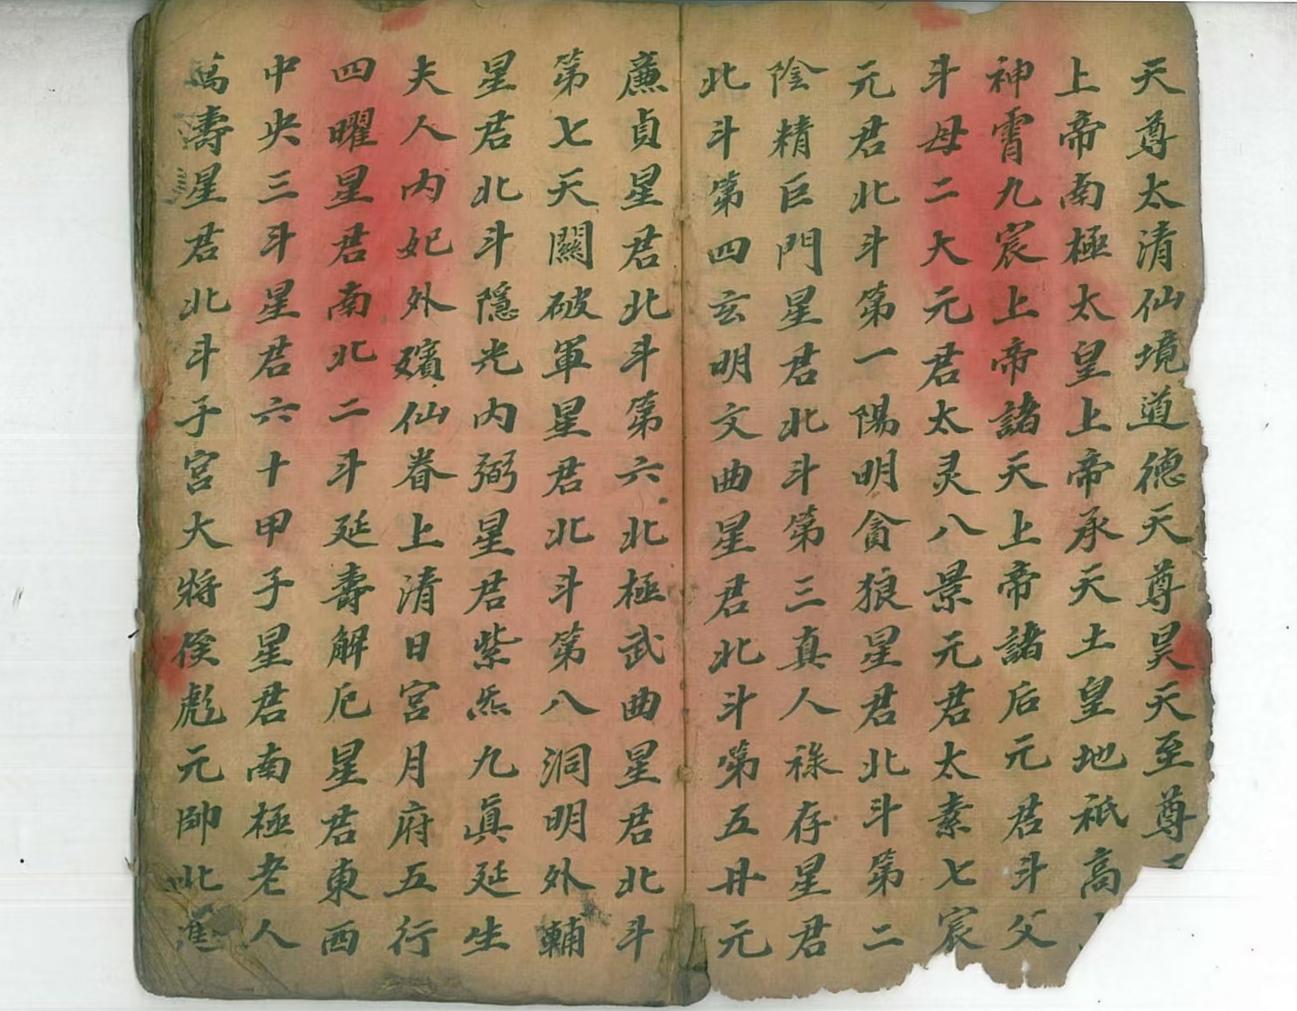 天尊太清仙境道德天尊昊天至尊
上帝南極太皇上帝承天土皇地祇高
神霄九宸上帝諸天上帝諸后元君斗父
斗母二大元君太灵八景元君太素七宸
元君北斗第一陽明貪狼星君北斗第二
陰精巨門星君北斗第三真人祿存星君
北斗第四玄明文曲星君北斗第五廾元
廉貞星君北斗第六北極武曲星君北斗
第七天關破軍星君北斗第八洞明外輔
星君北斗隱光内弼星君紫炁九真延生
夫人内妃外嬪仙眷上清日宮月府五行
四曜星君南北二斗延壽解厄星君東西
中央三斗星君六十甲子星君南極老人
萬濤星君北斗子宮大將侯彪元帥北